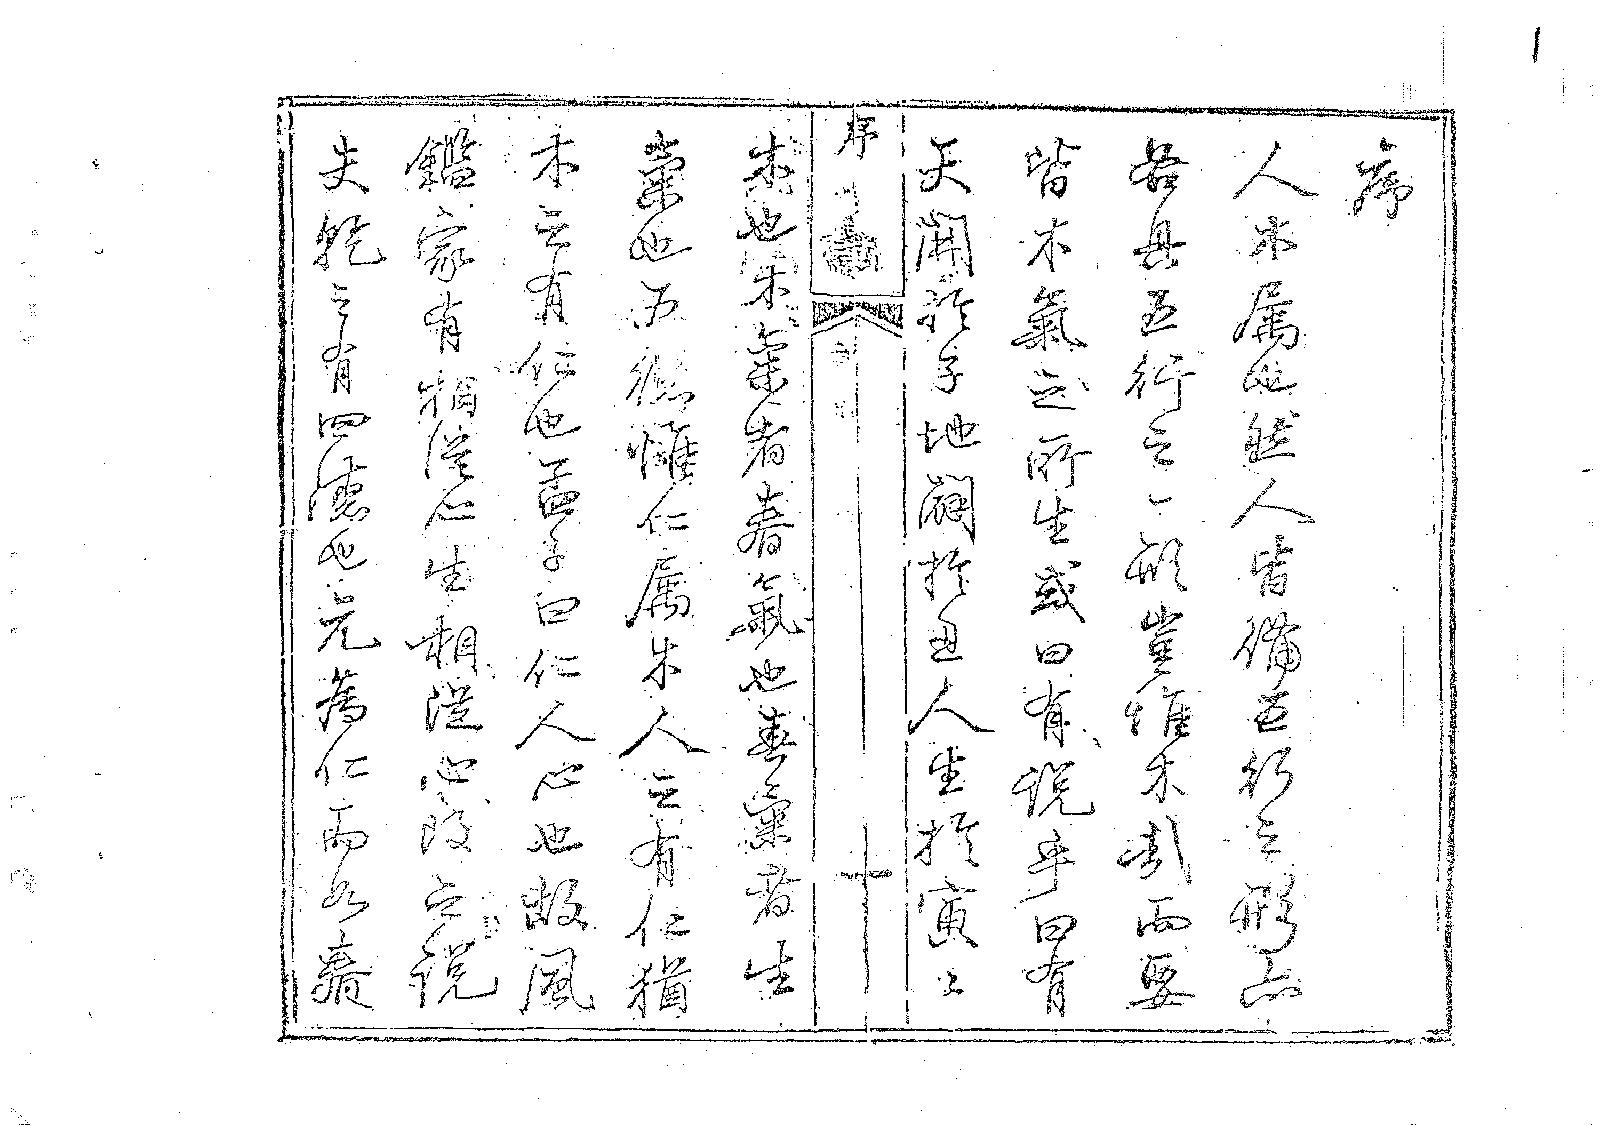 1
序
人木屬也然人皆備五行之形而
各具五行之一形豈惟木哉而要
皆木氣之所生或曰有說乎曰有
天開於子地闢於丑人生於寅寅
序
木也木稟者春氣也春稟者生
稟也五德惟仁屬木人之有仁猶
木之有仁也孟子曰仁人心也故風
鑑家有相從心生相從心改之說
夫乾之有四德也元為仁而為春